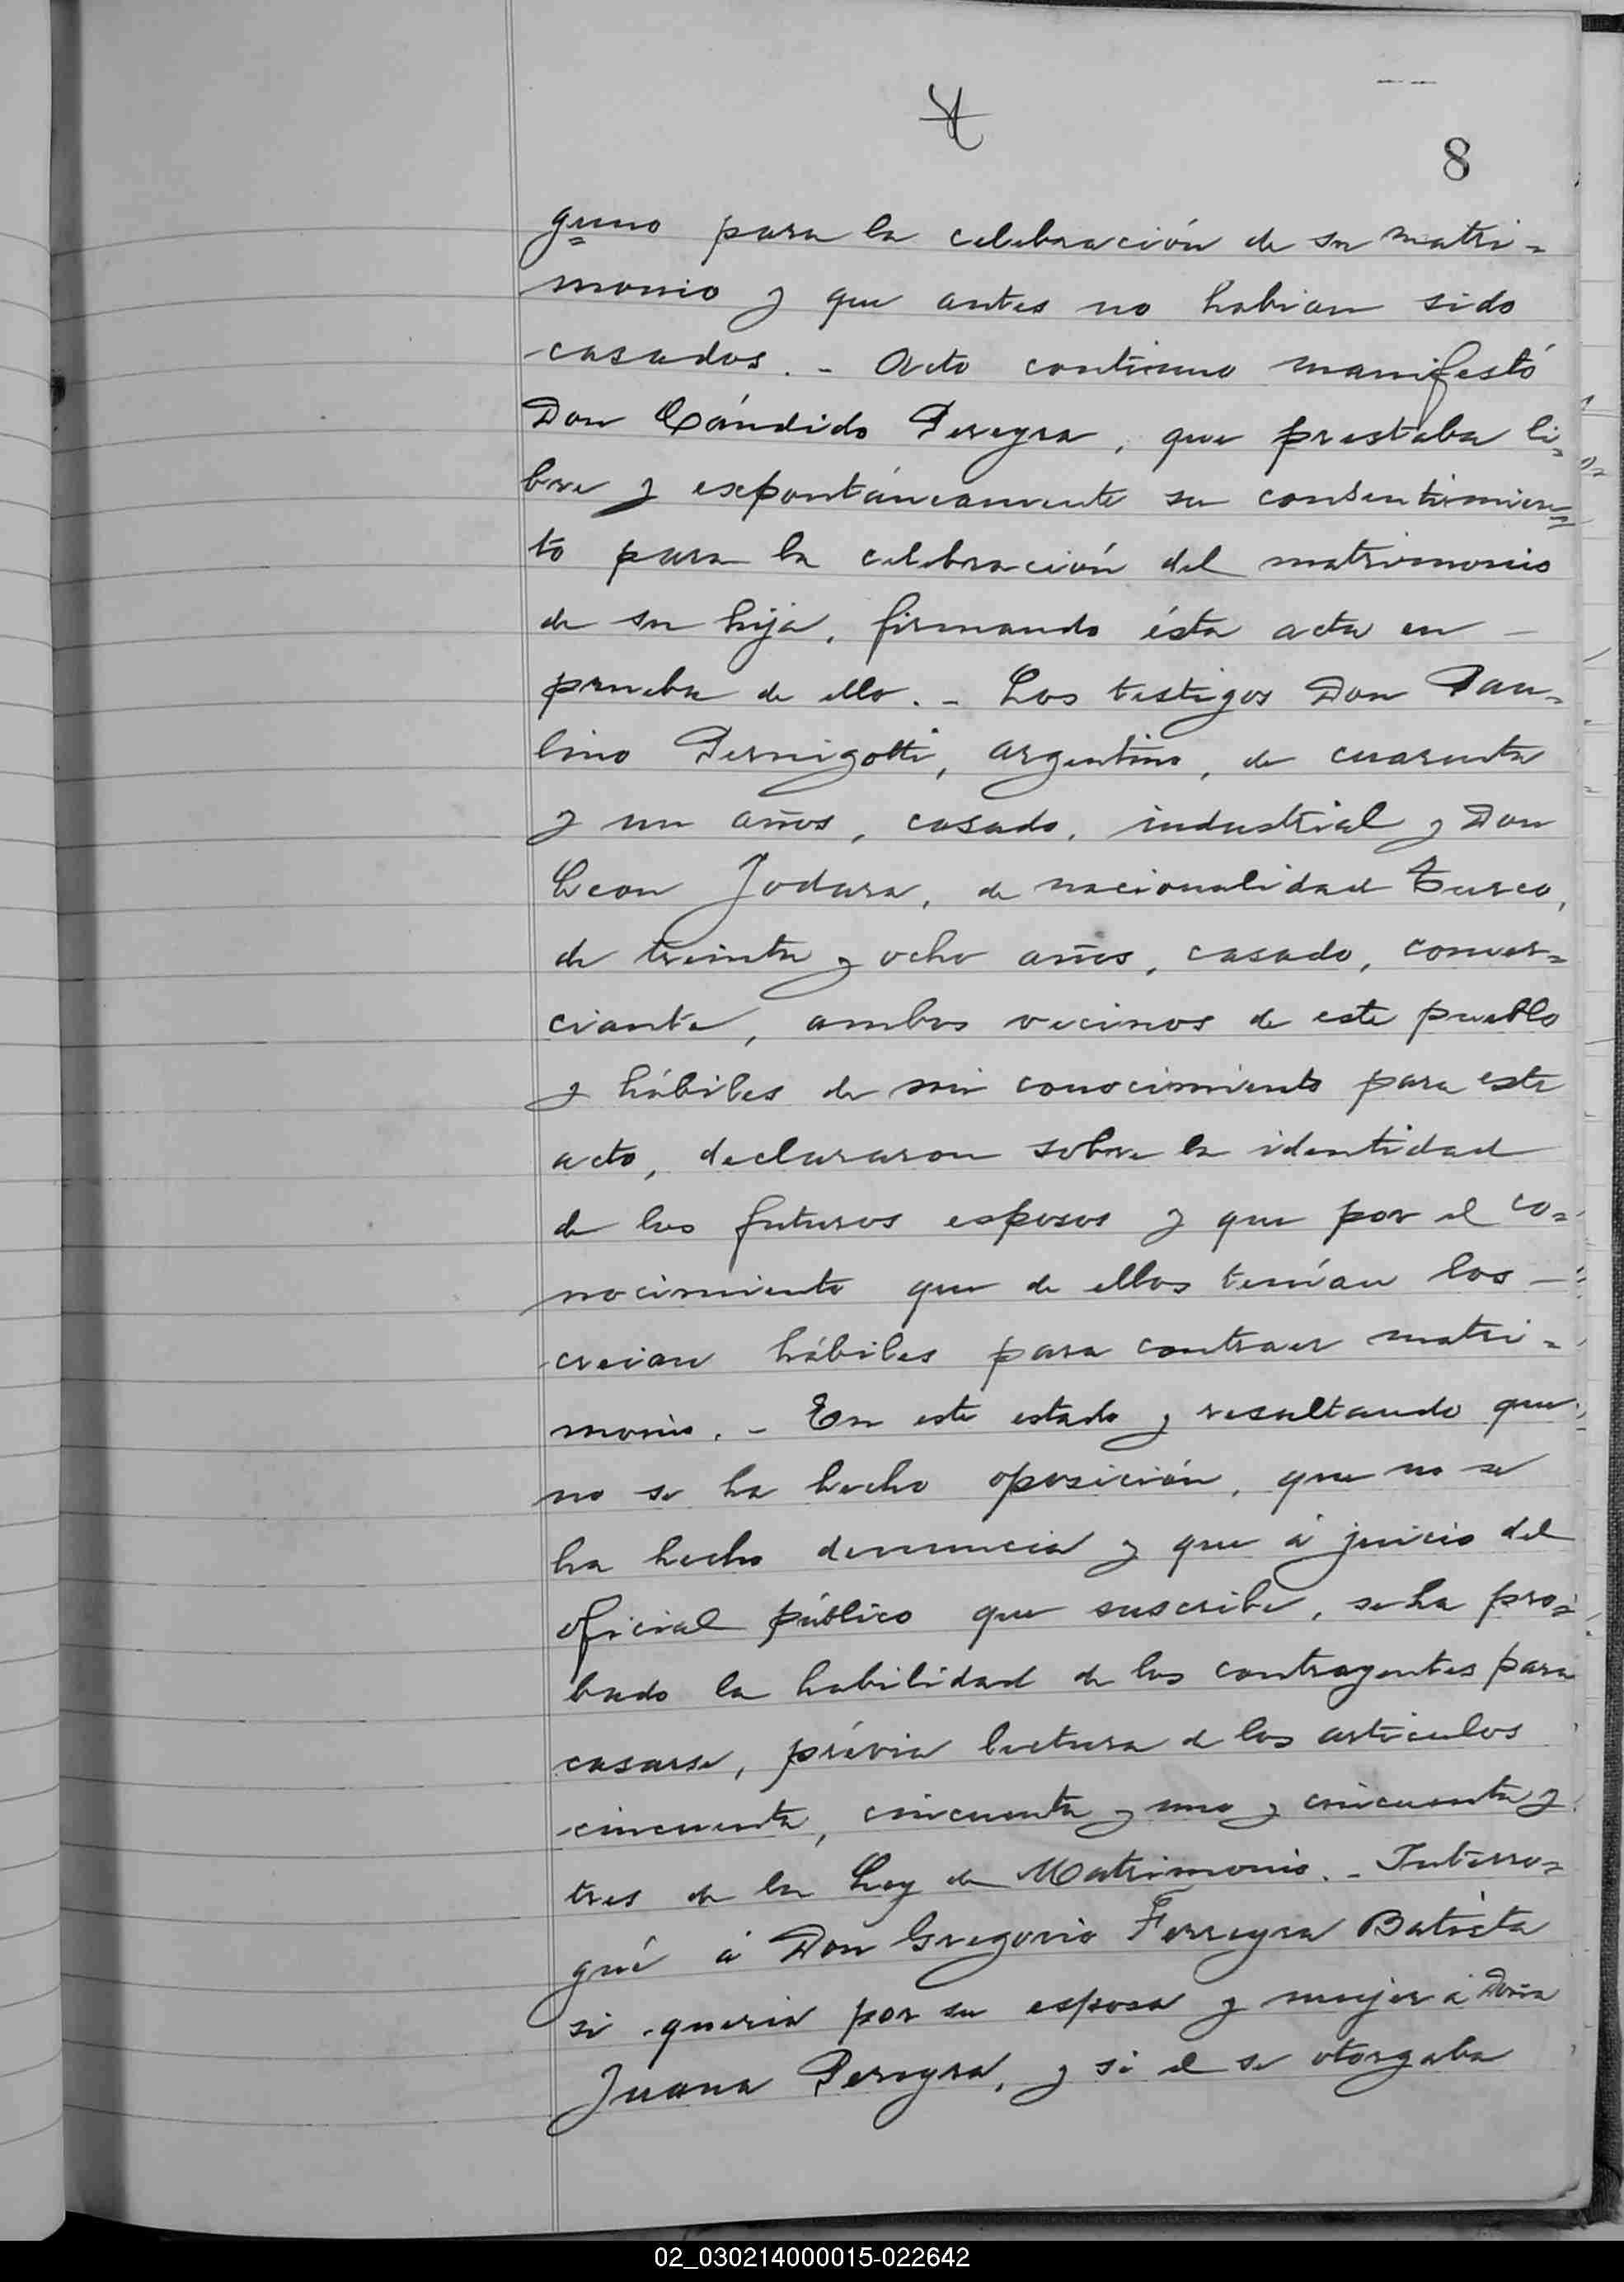 8
guno para la celebración de su matri=
monio y que antes no habian sido
casados. - Acto continuo manifestó
Don Cándido Pereyra, que prestaba li=
bre y expontáneamente su consentimien=
to para la celebración del matrimonio
de su hija, firmando ésta acta en -
prueba de ello. - Los testigos Don Pau=
lino Pernigotti, argentino, de cuarenta
y un años, casado, industrial y Don
Leon Jodara, de nacionalidad Turco,
de treinta y ocho años, casado, comer=
ciante, ambos vecinos de este pueblo
y hábiles de mi conocimiento para este
acto, declararon sobre la identidad
de los futuros esposos y que por el co=
nocimiento que de ellos tenían los -
creian hábiles para contraer matri=
monio. - En este estado y resultando que
no se ha hecho oposición, que no se
ha hecho denuncia y que á juicio del
oficial público que suscribe, se ha pro=
bado la habilidad de los contrayentes para
casarse, prévia lectura de los artículos
cincuenta, cincuenta y uno y cincuenta y
tres de la Ley de Matrimonio. - Interro=
gué á Don Gregorio Ferreyra Batista
si queria por su esposa y mujer á Doña
Juana Pereyra, y si el se otorgaba
02_030214000015-022642